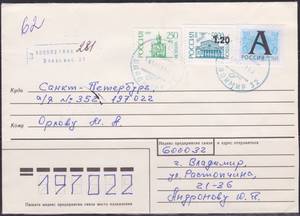 62
281
РОССИЯ 250
РОССИЯ 1.20
А
РОССИЯ
Куда Санкт-Петербург,
а/я № 352, 197022
Кому Орлову Н. Н.
Индекс предприятия связи и адрес отправителя
600032
г. Владимир,
ул. Растопчина,
21-36
Андронову Ю. П.
197022
Индекс предприятия связи места назначения